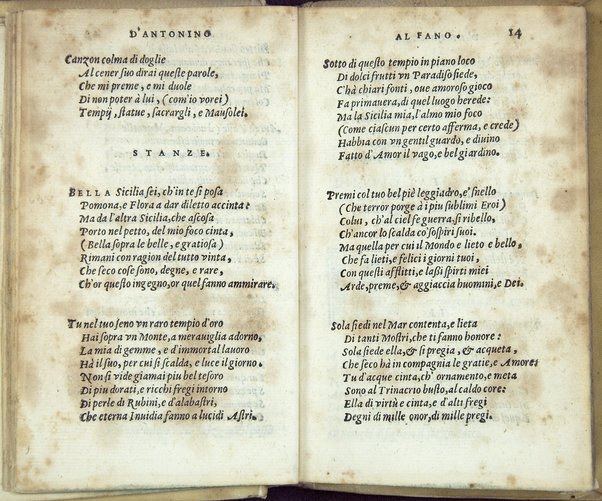 D'ANTONINO
Canzon colma di doglie
Al cener suo dirai queste parole,
Che mi preme, e mi duole
Di non poter à lui, (com'io vorei)
Tempij, statue, sacrargli, e Mausolei.
STANZE.
BELLA Sicilia sei, ch'in te si posa
Pomona, e Flora a dar diletto accinta:
Ma da l'altra Sicilia, che ascosa
Porto nel petto, del mio foco cinta,
(Bella sopra le belle, e gratiosa)
Rimani con ragion del tutto vinta,
Che seco cose sono, degne, e rare,
Ch'or questo ingegno, or quel fanno ammirare.
Tu nel tuo seno vn raro tempio d'oro
Hai sopra vn Monte, a merauiglia adorno,
La mia di gemme, e d'immortal lauoro
Hà il suo, per cui si scalda, e luce il giorno.
Non si vide giamai piu bel tesoro
Di piu dorati, e ricchi fregi intorno
Di perle di Rubini, e d'alabastri,
Che eterna Inuidia fanno a lucidi Astri.
AL FANO. 14
Sotto di questo tempio in piano loco
Di dolci frutti vn Paradiso siede,
C'hà chiari fonti, oue amoroso gioco
Fa primauera, di quel luogo herede:
Ma la Sicilia mia, l'almo mio foco
(Come ciascun per certo afferma, e crede)
Habbia con vn gentil guardo, e diuino
Fatto d'Amor il vago, e bel giardino.
Premi col tuo bel piè leggiadro, e' snello
(Che terror porge à i piu sublimi Eroi)
Colui, ch'al ciel fe guerra, si ribello,
Ch'ancor lo scalda co' sospiri suoi.
Ma quella per cui il Mondo e lieto e bello,
Che fa lieti, e felici i giorni tuoi,
Con questi afflitti, e lassi spirti miei
Arde, preme, & aggiaccia huomini, e Dei.
Sola siedi nel Mar contenta, e lieta
Di tanti Mostri, che ti fanno honore:
Sola siede ella, & si pregia, & acqueta,
Che seco hà in compagnia le gratie, e Amore:
Tu d'acque cinta, ch' ornamento, e meta
Sono al Trinacrio busto, al caldo core:
Ella di virtù e cinta, e d'alti fregi
Degni di mille onor, di mille pregi.